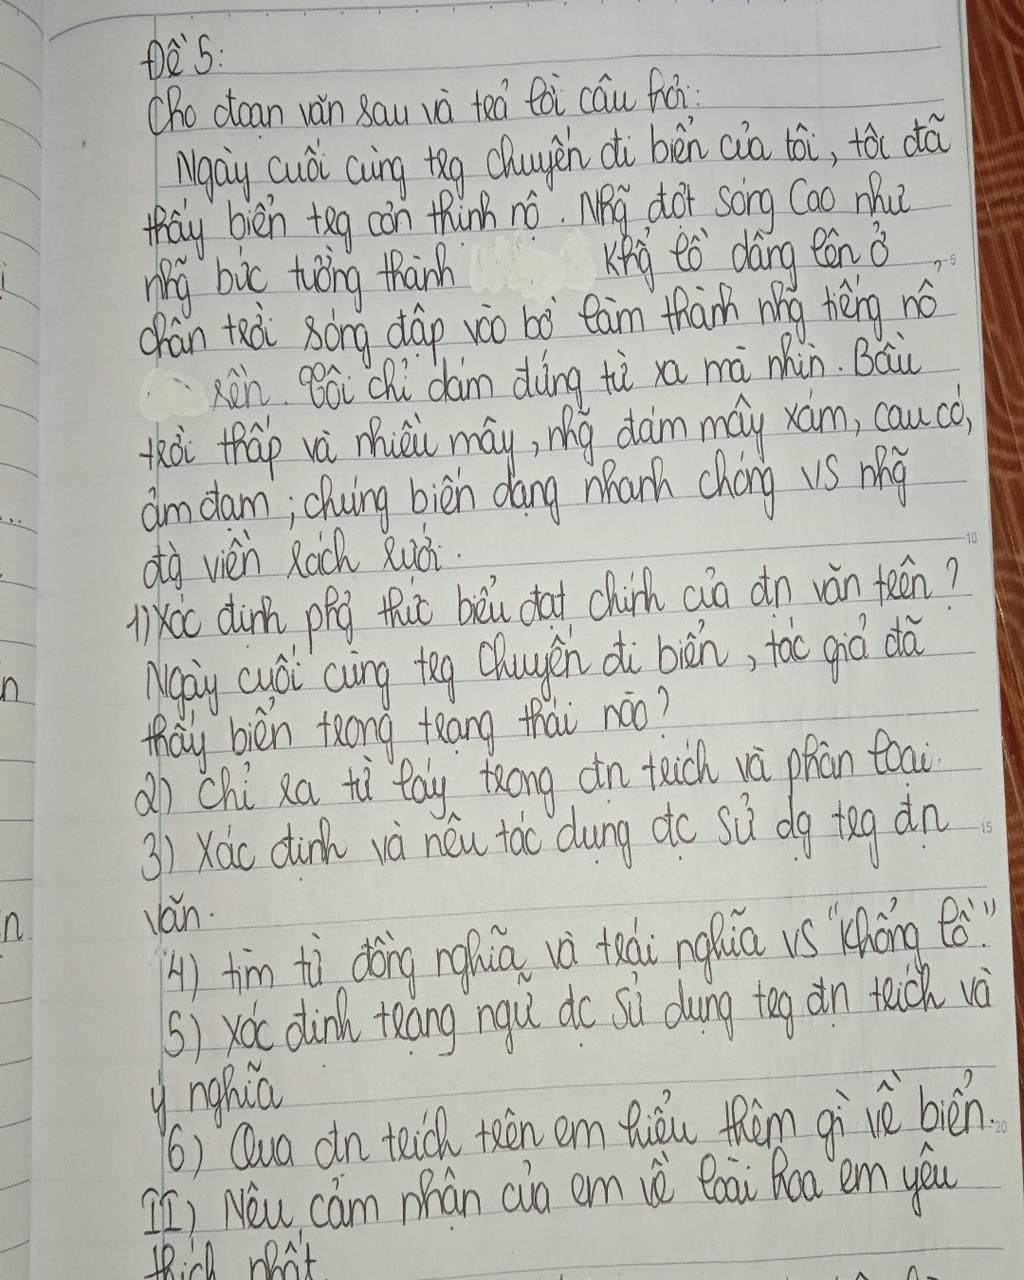 Đề 5:
Cho đoạn văn sau và trả lời câu hỏi:
Ngày cuối cùng trg chuyến đi biển của tôi, tôi đã
thấy biển trg cơn thịnh nộ. Nhg~ đợt sóng cao như
nhg~ bức tường thành khg? lồ dâng lên ở
chân trời sóng đập vào bờ làm thành nhg~ tiếng nổ
rền. Tôi chỉ dám đứng từ xa mà nhìn. Bầu
trời thấp và nhiều mây, nhg~ đám mây xám, cau có,
ảm đạm; chúng biến dạng nhanh chóng vs nhg~
đg` viền rách rưới.
1) Xác định phg thức biểu đạt chính của đn văn trên?
Ngày cuối cùng trg chuyến đi biển, tác giả đã
thấy biển trong trạng thái nào?
2) Chỉ ra từ láy trong đn trích và phân loại.
3) Xác định và nêu tác dụng đc sử dg trg đn
văn.
4) tìm từ đồng nghĩa và trái nghĩa vs "khổng lồ".
5) Xác định trạng ngữ đc sử dụng trg đn trích và
ý nghĩa
6) Qua đn trích trên em hiểu thêm gì về biển.
II) Nêu cảm nhận của em về loài hoa em yêu
thích nhất